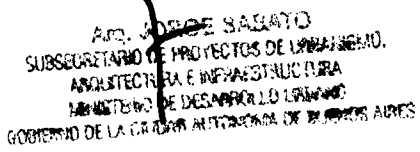 Arq. JORGE SABATO
SUBSECRETARIO DE PROYECTOS DE URBANISMO,
ARQUITECTURA E INFRAESTRUCTURA
MINISTERIO DE DESARROLLO URBANO
GOBIERNO DE LA CIUDAD AUTONOMA DE BUENOS AIRES